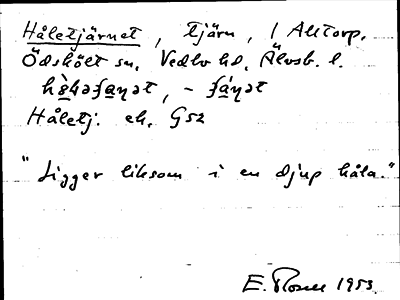 Håletjärnet, tjärn, i Alltorp.
Ödskölt sn. Vedbo hd. Älvsb. l.
Håletj. ek. G52
"Ligger liksom i en djup håla."
E. Rosell 1953